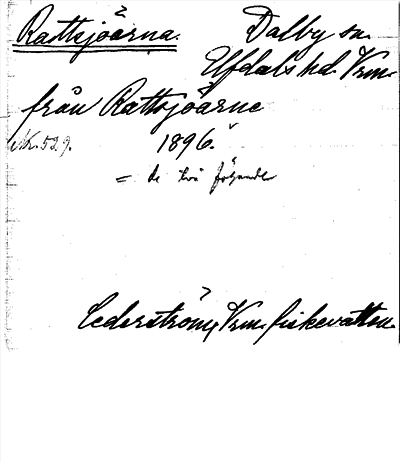 Rattsjöarna. Dalby sn.
Älvdals hd. Vrm.
från Rattsjöarne
Nr. 529. 1896.
= de två följande
Cederström, Vrm. fiskevatten.